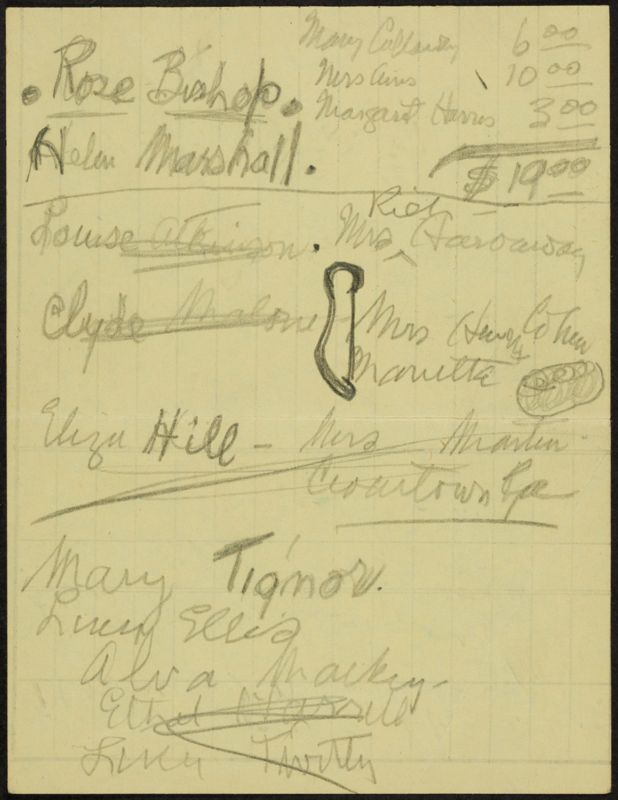 Mary Callaway 6 00
Mrs 10 00
Margaret Harris 3 00
$ 19 00
. Rose Bishop.
Helen Marshall.
Louise Atkinson. Mrs Hardaway
Clyde Malone - Mrs Henry Cohen
Marietta
Eliza Hill - Mrs Martin
Mary Tignor.
Lucy Ellis
Alva Mackey
Ethel